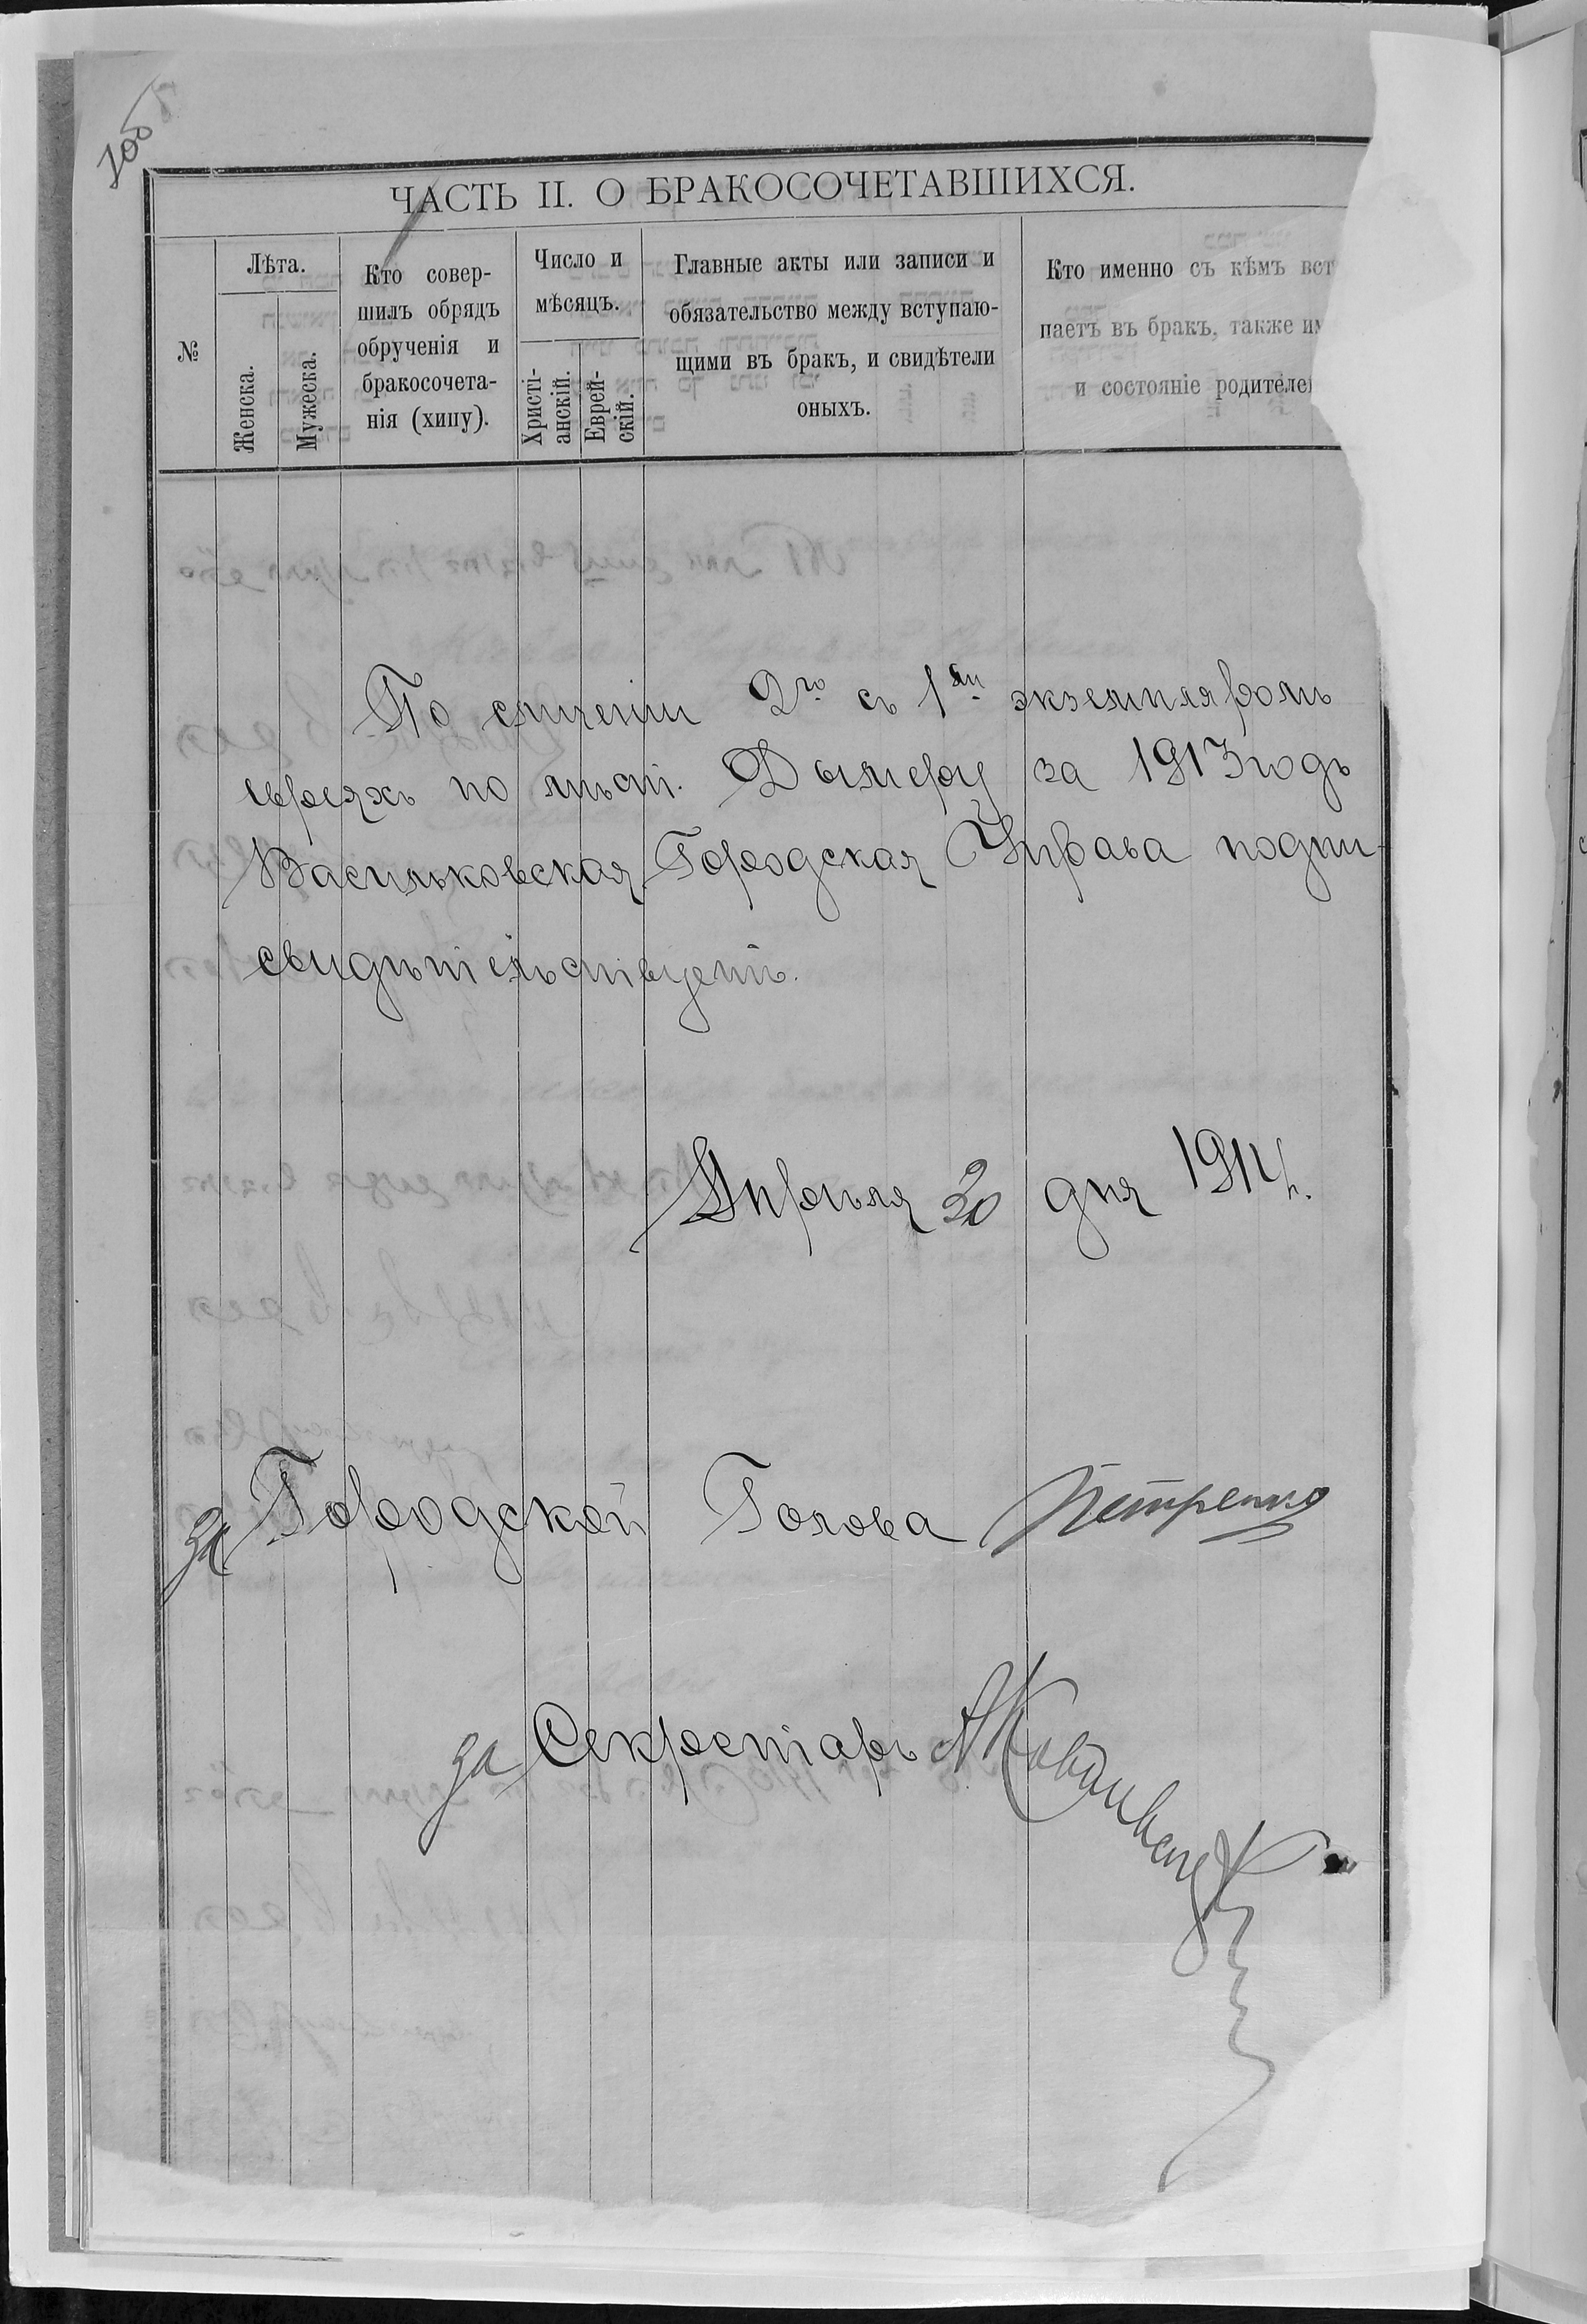 ЧАСТЬ II. О БРАКОСОЧЕТАВШИХСЯ.
№
Лѣта.
Женска.
Мужеска.
Кто совер-
шилъ обрядъ
обрученія и
бракосочета-
нія (хипу).
Число и
мѣсяцъ.
Христі-
анскій.
Еврей-
скій.
Главные акты или записи и
обязательство между вступаю-
щими въ бракъ, и свидѣтели
оныхъ.
Кто именно съ кѣмъ вст
паетъ въ бракъ, также им
и состояніе родителе
По сличеніи 2го съ 1мъ экземпляромъ
евреяхъ по мѣст. Дымеру за 1913 годъ
Васильковская Городская Управа подпи-
свидѣтельствуетъ.
Апрѣля 30 дня 1914 г.
за Городской Голова Петренко
за Секретарь